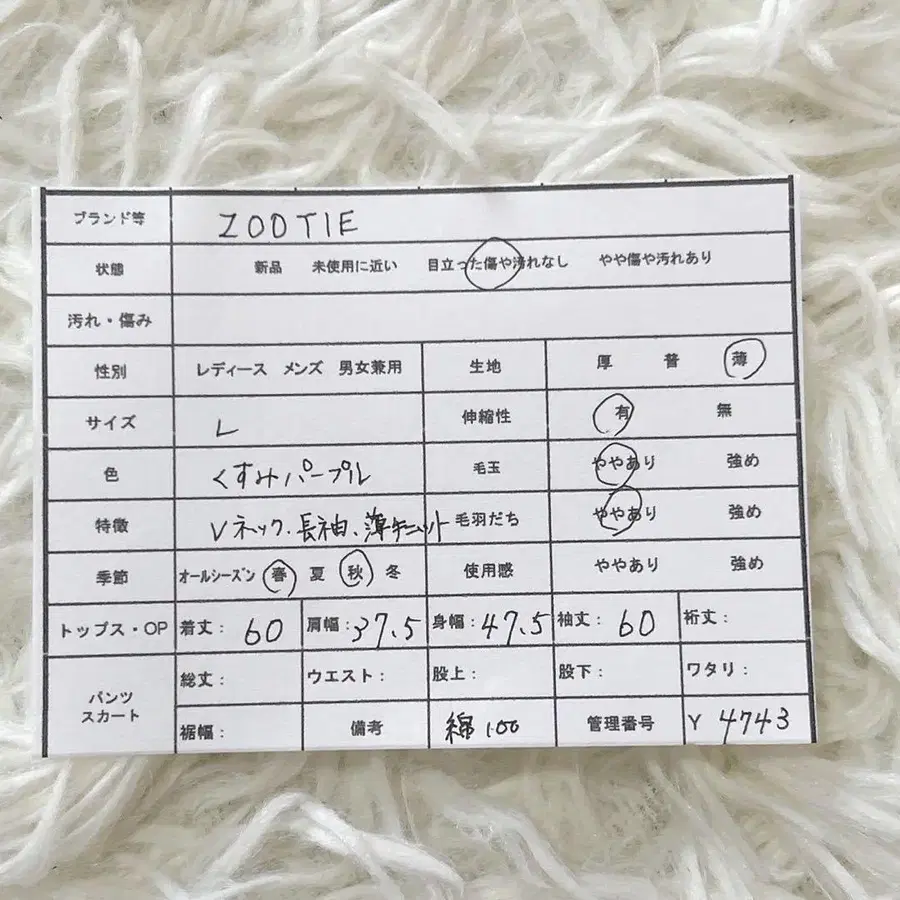 ブランド等 ZOOTIE
状態 新品 未使用に近い 目立った傷や汚れなし やや傷や汚れあり
汚れ・傷み
性別 レディース メンズ 男女兼用 生地 厚 普 薄
サイズ L 伸縮性 有 無
色 くすみパープル 毛玉 ややあり 強め
特徴 Vネック、長袖、薄手ニット 毛羽だち ややあり 強め
季節 オールシーズン 春 夏 秋 冬 使用感 ややあり 強め
トップス・OP 着丈: 60 肩幅: 37.5 身幅: 47.5 袖丈: 60 裄丈:
パンツ スカート 総丈: ウエスト: 股上: 股下: ワタリ:
裾幅: 備考 綿100 管理番号 Y 4743